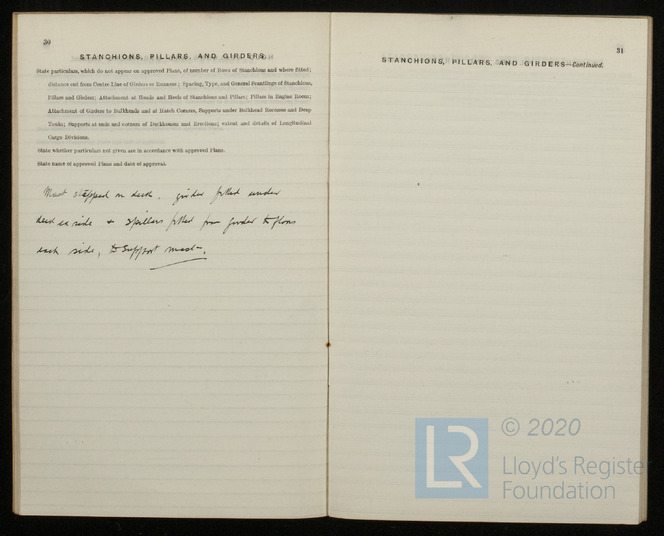 30
STANCHIONS, PILLARS, AND GIRDERS.
State particulars, which do not appear on approved Plans, of number of Rows of Stanchions and where fitted;
distance out from Centre Line of Girders or Runners; Spacing, Type, and General Scantlings of Stanchions,
Pillars and Girders; Attachment at Heads and Heels of Stanchions and Pillars; Pillars in Engine Room;
Attachment of Girders to Bulkheads and at Hatch Corners, Supports under Bulkhead Recesses and Deep
Tanks; Supports at ends and corners of Deckhouses and Erections; extent and details of Longitudinal
Cargo Divisions.
State whether particulars not given are in accordance with approved Plans.
State name of approved Plans and date of approval.
Mast stepped on deck, girder fitted under
deck ea side & pillars fitted from girder to floors
each side, to support mast.
31
STANCHIONS, PILLARS, AND GIRDERS—Continued.
LR
© 2020
Lloyd's Register
Foundation